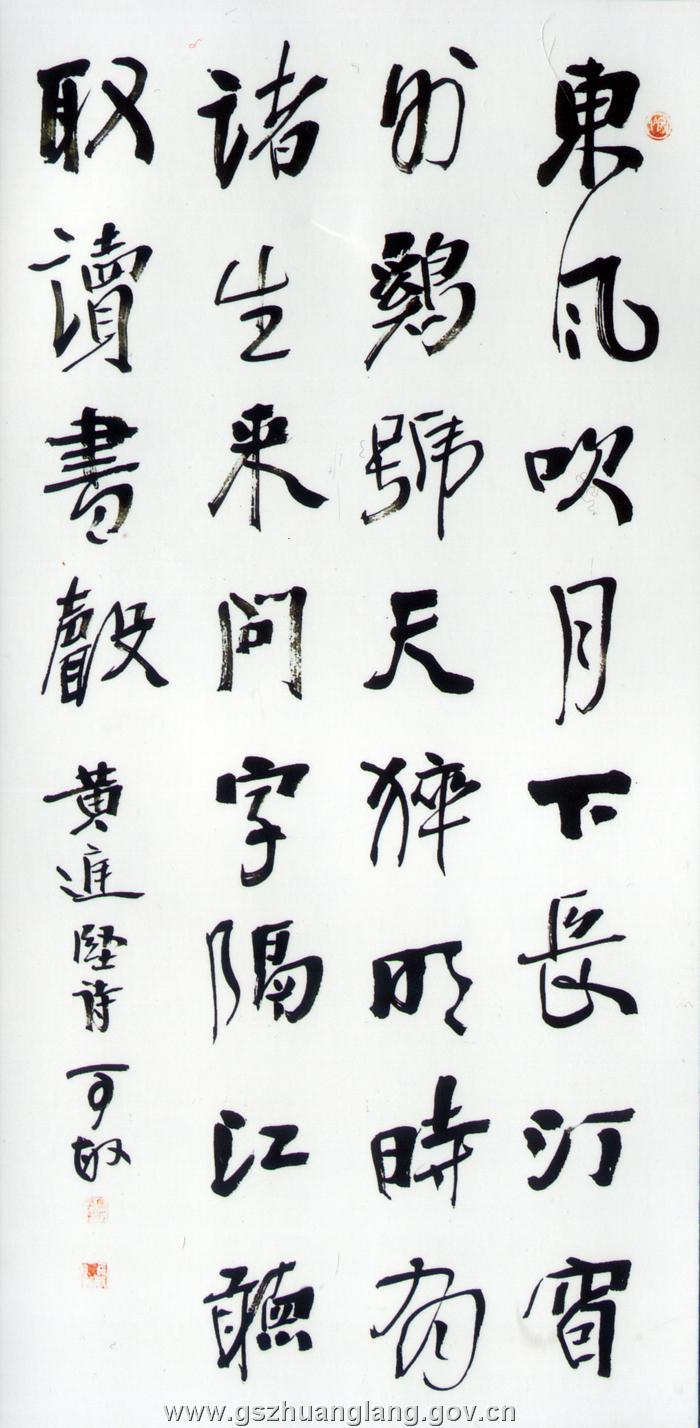 東風吹月下長汀窗
外鷄號天猝明時有
諸生来問字隔江聽
取讀書聲
黃庭堅詩 可敬
www.gszhuanglang.gov.cn